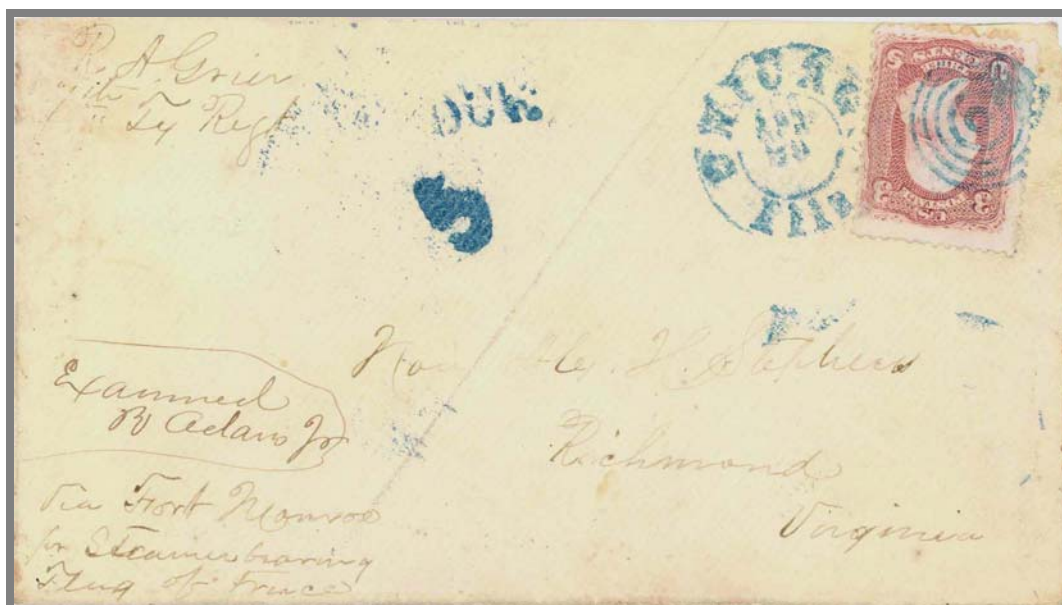 R. A. Grier
Regt
DUE
5
CHICAGO
ILLS
3 3
U.S.
POSTAGE
Hon Alex. H. Stephens
Richmond
Virginia
Examined
Adams Jr
Via Fort Monroe
pr Steamer bearing
Flag of Truce